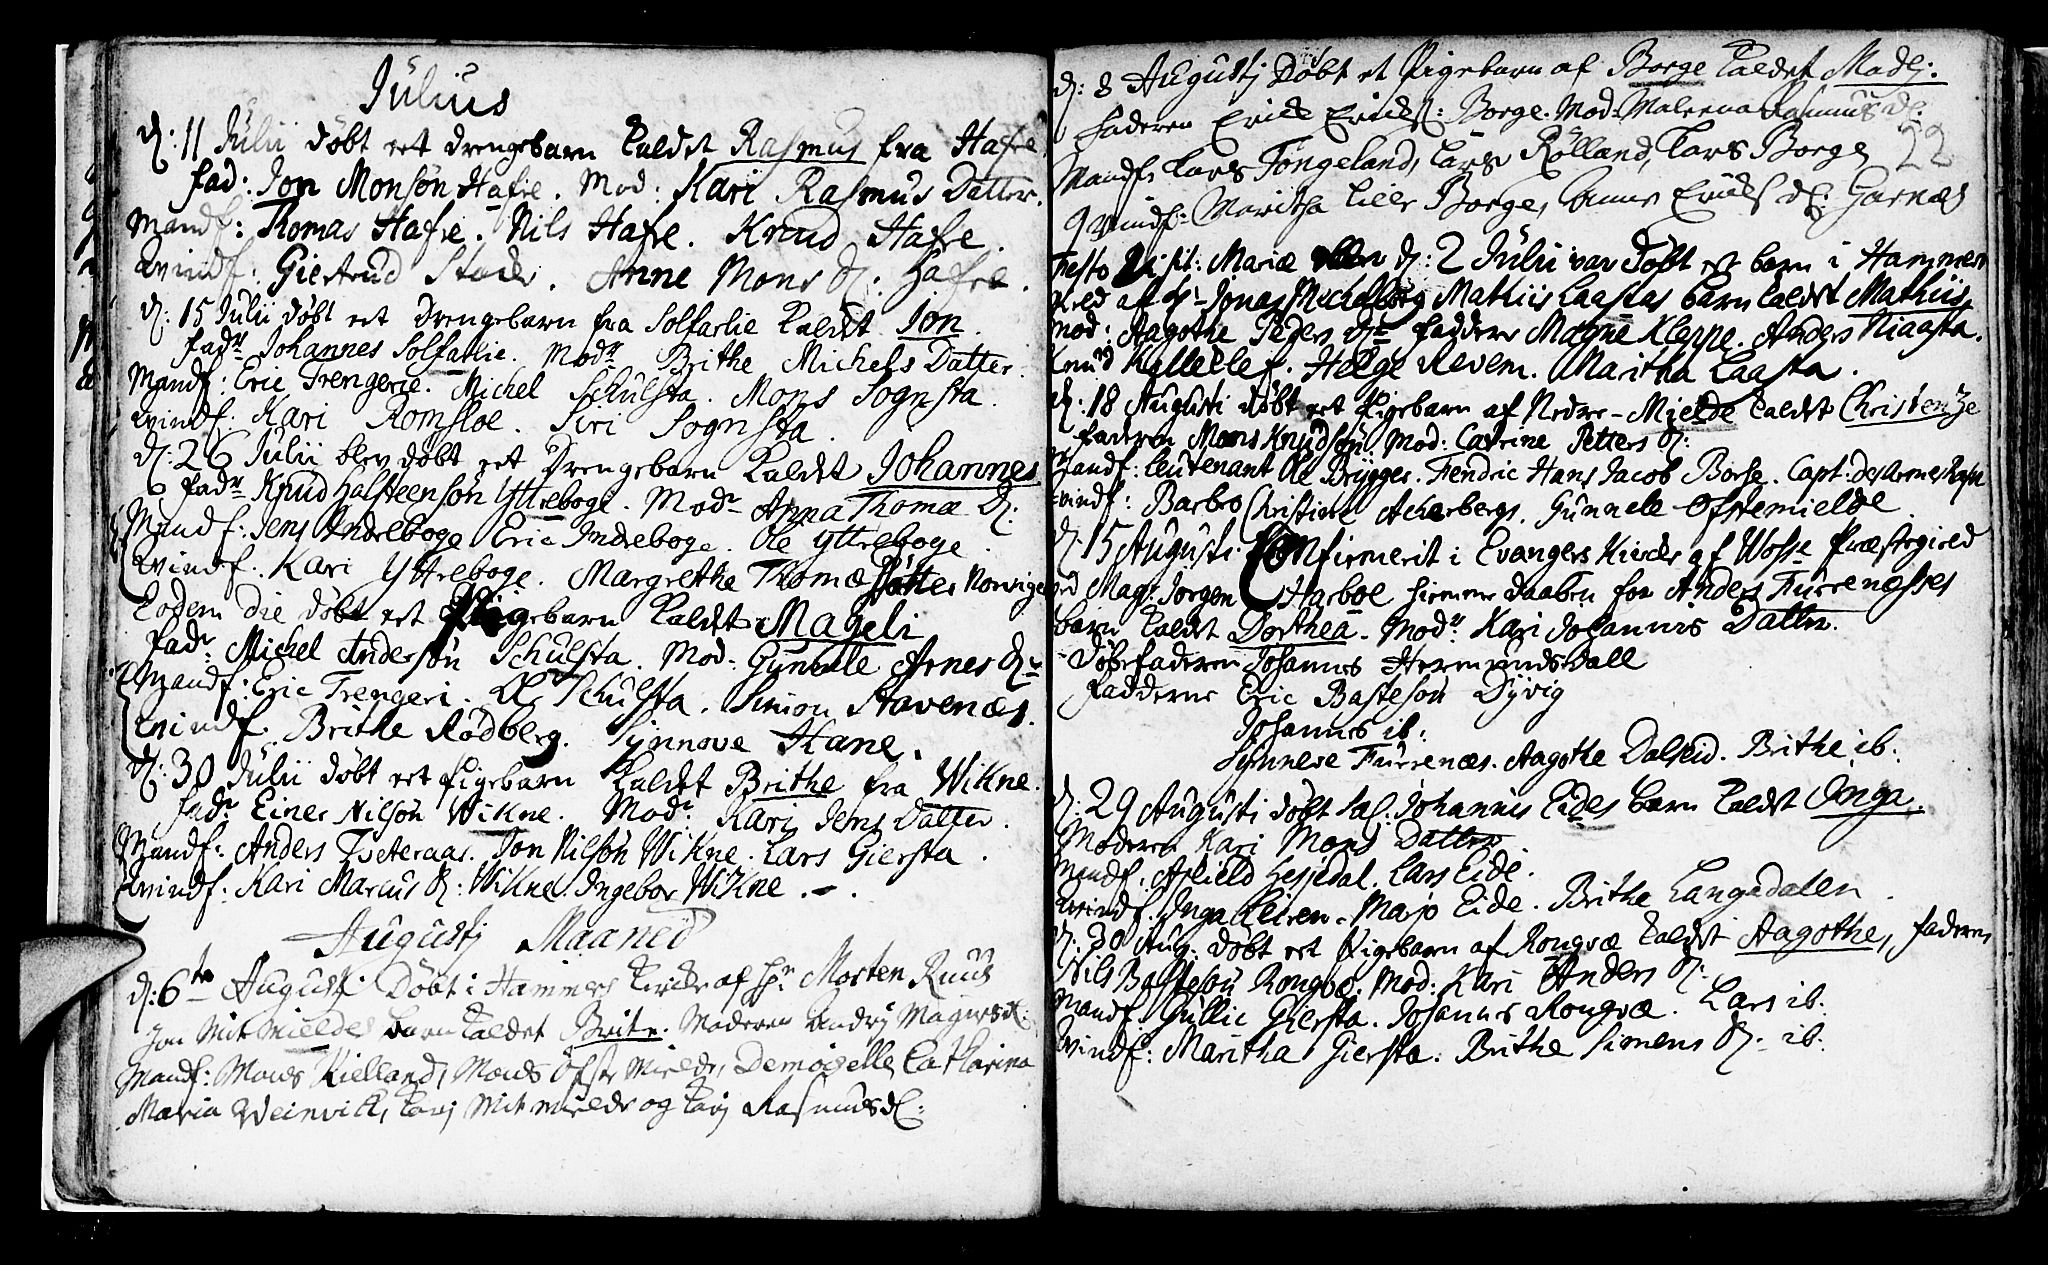 Julius
d: 11 Julii døbt eet drengebarn kaldet Rasmus fra Hafre.
fad: Jon Monsøn Hafre. Mod: Kari Rasmus Datter.
Mandf: Thomas Hafre. Nils Hafre. Knud Hafre.
Kvindf: Giertrud Mons D: Hafre.
d: 15 Julii døbt eet drengebarn fra Solfarlie kaldet Jon.
fadr Johannes Solfarlie. Modr Brithe Michels Datter.
Mandf: Eric Trengerie. Michel Schulsta. Mons Sognsta.
Kvindf: Kari Romsloe. Siri Sognsta.
d: 26 Julii blev døbt eet Drengebarn kaldet Johannes
fadr Knud Halsteensøn Yttreboge. Modr Anna Thomæ D:
Mandf: Jens Indreboge Eric Indreboge. Ole Yttreboge.
Kvindf. Kari Yttreboge. Margrethe Thomæ Datter Norvige
Eodem die døbt eet Pigebarn kaldet Mageli
fadr Michel Andersøn Schulsta. Mod: Gunnele Arnes D:
Mandf: Eric Trengeri. Ole Schulsta. Simon Stavenæs.
Kvindf. Brithe Rødberg. Synnove Hane.
d: 30 Julii døbt eet Pigebarn kaldet Brithe fra Wikne.
fadr Einer Nilsøn Wikne. Modr Kari Jens Datter.
Mandf: Anders Tveteraas. Jon Nilsøn Wikne. Lars Giersta.
Kvindf: Kari Marcus D: Wikne. Ingebor Wikne.
Augustj Maaned
d: 6te Augusti Døbt i Hammers Kircke af Hr Morten Ruus
Jon Mit Mieldes barn kaldet Brite. Moderen Andrj Magnusd:
Mandf: Mons Kielland, Mons Øfste Mielde, Demoiselle Catharina
Maria Weinvick, Mit mielde og Rasmusd:
d: 8 Augustj Døbt et Pigebarn af Borge kaldet Madlj:
Faderen Erick Ericks: Borge. Mod: Maleena Rasmusd:
22
Mandf: Lars Tøngeland, Lars Rølland, Lars Borge
Qvindf: Maritha Lille Borge, Anne Ericks d: Garnæs
Festo Visit: Mariæ d: 2 Julii var døbt et barn i Hammers
Kircke af Hr Jonas Michelborg Mathiis Laastas barn kaldet Mathiis.
Mod: Aagothe Peders Dr faddere Magne Kleppe. Anders Niaasta.
Knud Kallelle. Helge Revem. Maritha Laasta.
d: 18 Augusti døbt eet Pigebarn af Nedre-Mielde kaldet Christenze
Faderen Mons Knudsøn. Mod: Catrine Petters D:
Mandf: Leutenant Ole Brygger. Fendric Hans Jacob Borse. Capt:
Kvindf: Barbro Christine Acherbergs. Gunnele Øfstemielde
d. 15 Augusti Confirmerit i Evangers Kircke af Wosse Præstegield
ved Mag: Jørgen Harboe hiemme daaben for Anders Furrenæsses
barn kaldet Dorthea. Modr Kari Johannis Datter.
Døbefaderen Johannes Heremundsdall
Fadderne Eric Bastesøn Dyvig
Johannes ib:
Synneve Furrenæs. Aagothe Dalseid. Brithe ib.
d: 29 Augusti døbt Sal. Johannis Eides barn kaldet Inga.
Moderen Kari Mons Datter
Mandf: Askield Hesjedal. Lars Eide.
Kvindf. Inga Leiren. Marjo Eide. Brithe Langedalen.
d: 30 Aug: døbt eet Pigebarn af Rongvæ kaldet Aagothe, faderen
Nils Bastesøn Rongvæ. Mod: Kari Anders D:
Mandf. Gullic Giersta. Johannes Rongvæ. Lars ib:
Kvindf: Maritha Giersta. Brithe Simens D: ib: